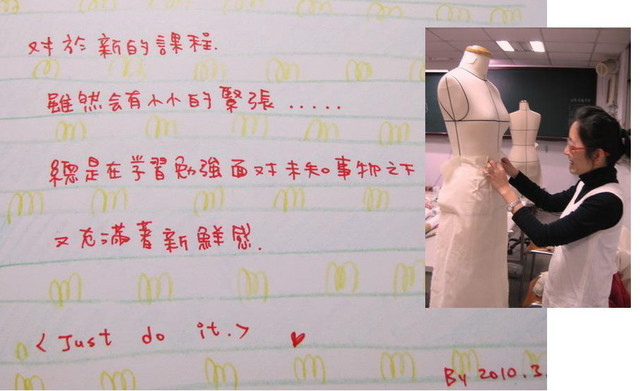 对於新的課程.
雖然会有小小的緊張......
總是在学習勉強面对未知事物之下
又充滿著新鮮感.
<Just do it.> ♥
By 2010.3.